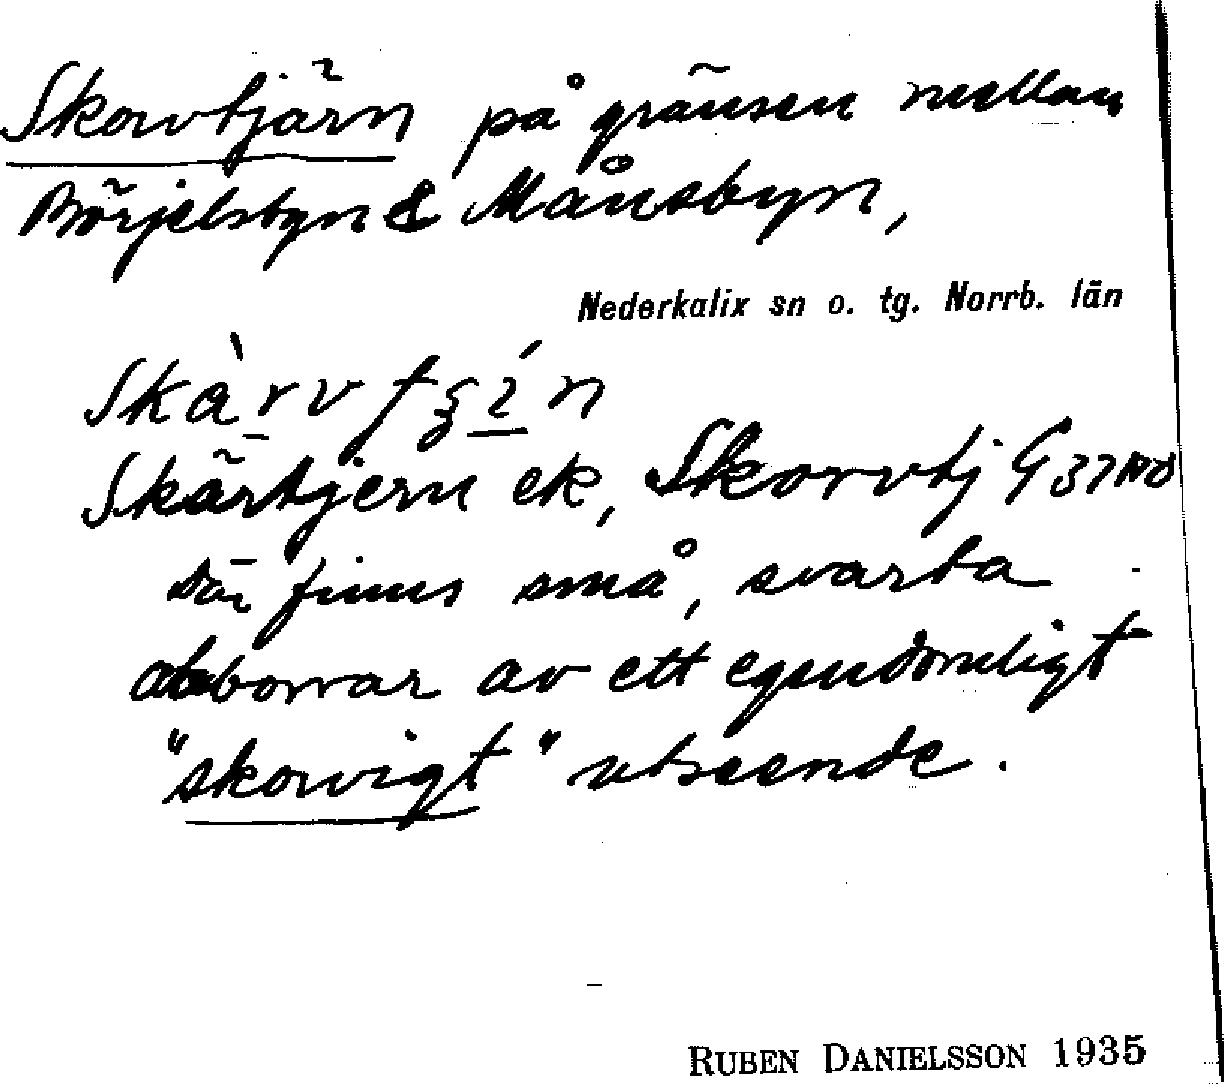 Skorvtjärn på gränsen mellan
Börjelsbyn & Månsbyn,
Nederkalix sn o. tg. Norrb. län
Skärtjern ek, Skorvtj G 37 NO
där finns små, svarta
abborrar av ett egendomligt
"skorvigt" utseende.
RUBEN DANIELSSON 1935